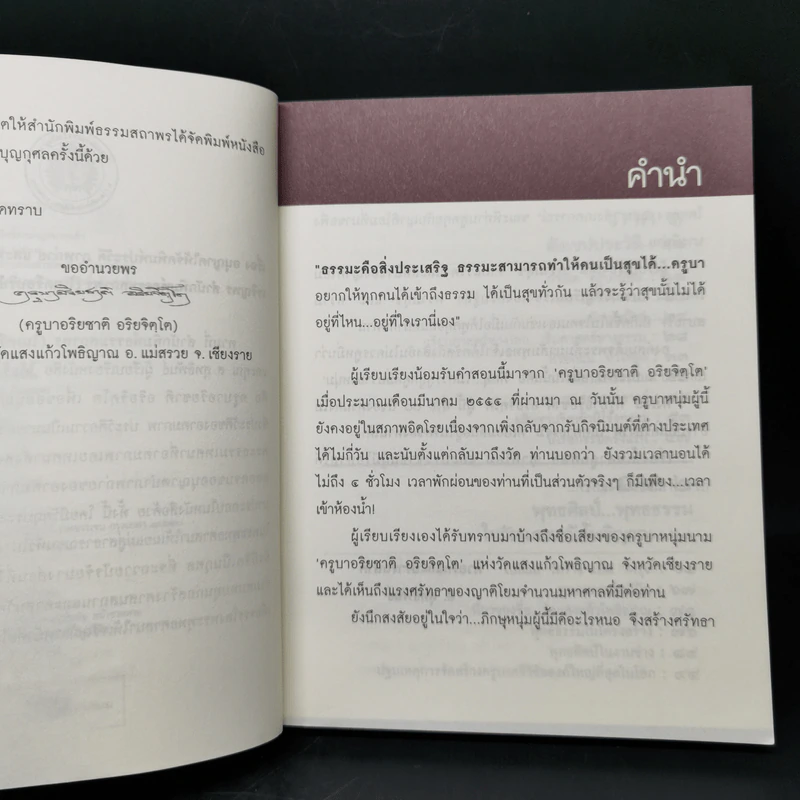 ตให้สำนักพิมพ์ธรรมสถาพรได้จัดพิมพ์หนังสือ
บุญกุศลครั้งนี้ด้วย
ดทราบ
ขออำนวยพร
(ครูบาอริยชาติ อริยจิตฺโต)
วัดแสงแก้วโพธิญาณ อ. แม่สรวย จ. เชียงราย
คำนำ
"ธรรมะคือสิ่งประเสริฐ ธรรมะสามารถทำให้คนเป็นสุขได้...ครูบา
อยากให้ทุกคนได้เข้าถึงธรรม ได้เป็นสุขทั่วกัน แล้วจะรู้ว่าสุขนั้นไม่ได้
อยู่ที่ไหน...อยู่ที่ใจเรานี่เอง"
ผู้เรียบเรียงน้อมรับคำสอนนี้มาจาก 'ครูบาอริยชาติ อริยจิตฺโต'
เมื่อประมาณเดือนมีนาคม ๒๕๕๔ ที่ผ่านมา ณ วันนั้น ครูบาหนุ่มผู้นี้
ยังคงอยู่ในสภาพอิดโรยเนื่องจากเพิ่งกลับจากรับกิจนิมนต์ที่ต่างประเทศ
ได้ไม่กี่วัน และนับตั้งแต่กลับมาถึงวัด ท่านบอกว่า ยังรวมเวลานอนได้
ไม่ถึง ๔ ชั่วโมง เวลาพักผ่อนของท่านที่เป็นส่วนตัวจริงๆ ก็มีเพียง...เวลา
เข้าห้องน้ำ!
ผู้เรียบเรียงเองได้รับทราบมาบ้างถึงชื่อเสียงของครูบาหนุ่มนาม
'ครูบาอริยชาติ อริยจิตฺโต' แห่งวัดแสงแก้วโพธิญาณ จังหวัดเชียงราย
และได้เห็นถึงแรงศรัทธาของญาติโยมจำนวนมหาศาลที่มีต่อท่าน
ยังนึกสงสัยอยู่ในใจว่า...ภิกษุหนุ่มผู้นี้มีดีอะไรหนอ จึงสร้างศรัทธา